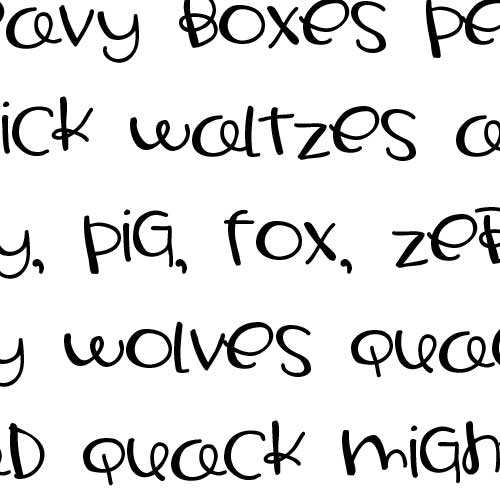 eavy boxes pe
ick waltzes a
y, pig, fox, zeb
y wolves quac
ed quack migh